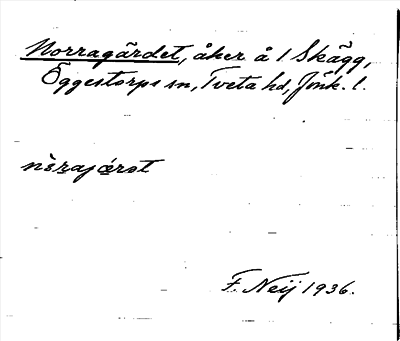 Norragärdet, åker å 1 Skägg,
Öggestorps sn, Tveta hd, Jönk. l.
F. Neij 1936.